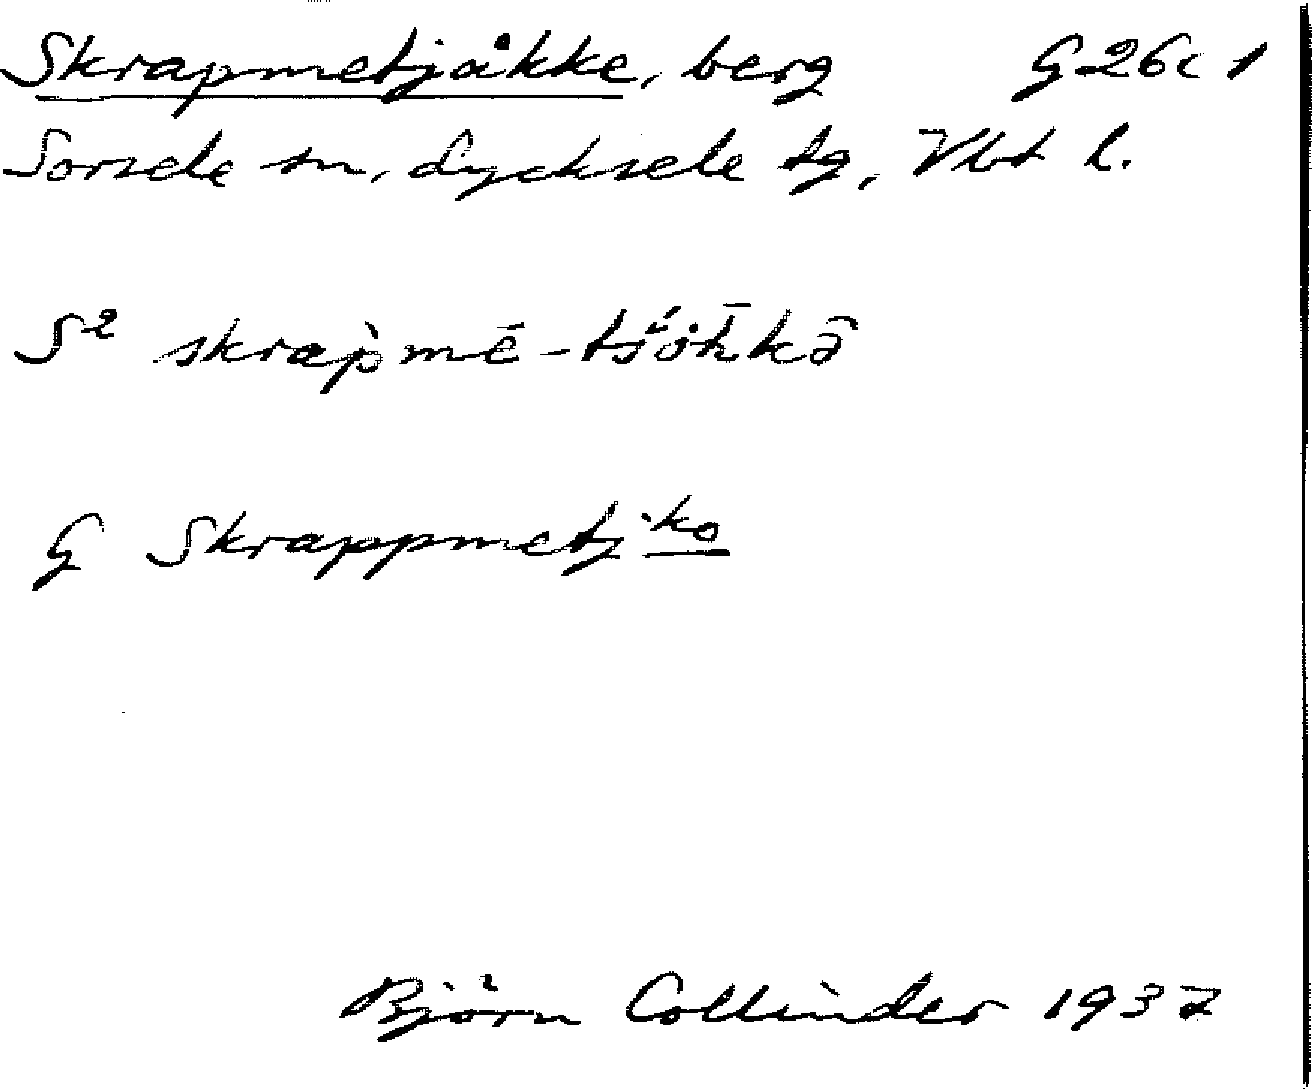 Skrapmetjåkke, berg G26c 1
Sorsele sn, Lycksele tg, Vbt l.
S² skrap̀mē-tš́ȯh̄kə̄
G Skrappmetj.ko
Björn Collinder 1937